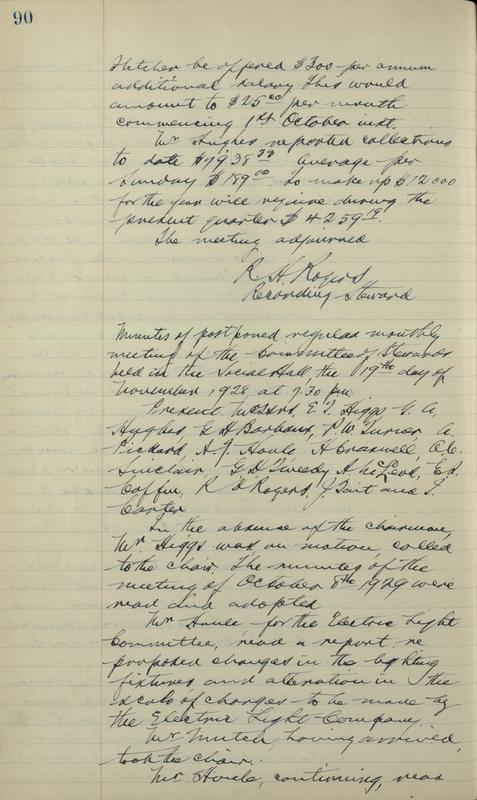 90
Fletcher be offered $300 per annum
additional salary This would
amount to $25 00 per month
commencing 1st October inst.
Mr Hughes reported collections
to date $7938 33 average per
Sunday $189 00 to make up $12000
for the year will require during the
present quarter $4259
The meeting adjourned
R H Rogers
Recording Steward
Minutes of postponed regular monthly
meeting of the Committee of Stewards
held in the Social Hall, the 19th day of
November 1928, at 7.30 pm
Present Messrs E. T. Higgs, G. A.
Hughes, G H Barbour, P. W. Turner, A.
Pickard, A. J. Houle H Braswell, O. C.
Sinclair, G D Tweedy A McLeod, Ed.
Coffin, R H Rogers, J Tait and T.
Carter
In the absence of the chairman,
Mr Higgs was on motion, called
to the chair. The minutes of the
meeting of October 8th 1929 were
read and adopted
Mr Houle for the Electric Light
Committee, read a report re
proposed changes in the lighting
fixtures and alteration in the
scale of charges to be made by
the Electric Light Company.
Mr Mutch, having arrived,
took the chair.
Mr Houle, continuing, read